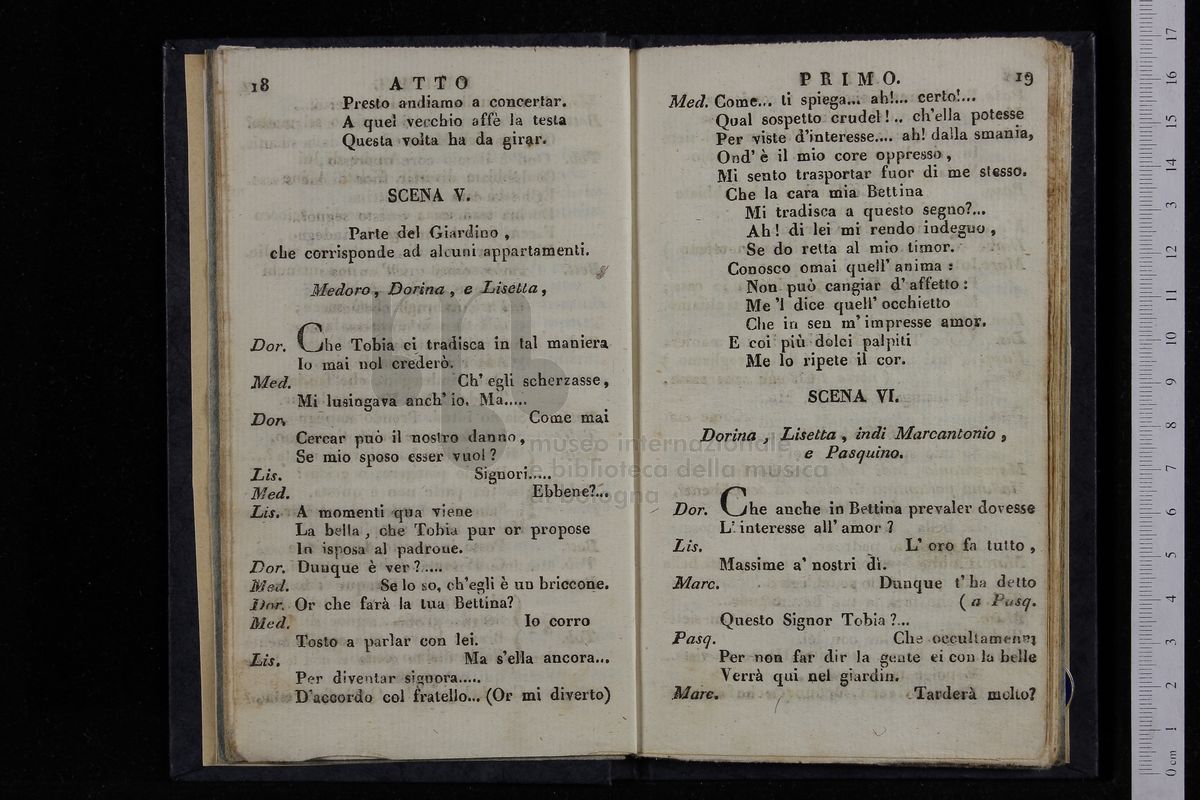 18 ATTO
Presto andiamo a concertar.
A quel vecchio affè la testa
Questa volta ha da girar.
SCENA V.
Parte del Giardino ,
che corrisponde ad alcuni appartamenti.
Medoro, Dorina , e Lisetta ,
Dor. Che Tobia ci tradisca in tal maniera
Io mai nol crederò.
Med. Ch' egli scherzasse,
Mi lusingava anch' io. Ma.....
Dor. Come mai
Cercar può il nostro danno,
Se mio sposo esser vuol ?
Lis. Signori.....
Med. Ebbene?...
Lis. A momenti qua viene
La bella , che Tobia pur or propose
In isposa al padrone.
Dor. Dunque è ver ?.....
Med. Se lo so, ch'egli è un briccone.
Dor. Or che farà la tua Bettina?
Med. Io corro
Tosto a parlar con lei.
Lis. Ma s'ella ancora...
Per diventar signora.....
D'accordo col fratello... (Or mi diverto)
PRIMO. 19
Med. Come... ti spiega... ah!... certo!...
Qual sospetto crudel ! .. ch'ella potesse
Per viste d'interesse.... ah! dalla smania,
Ond' è il mio core oppresso ,
Mi sento trasportar fuor di me stesso.
Che la cara mia Bettina
Mi tradisca a questo segno?...
Ah! di lei mi rendo indegno ,
Se do retta al mio timor.
Conosco omai quell' anima :
Non può cangiar d' affetto :
Me 'l dice quell' occhietto
Che in sen m' impresse amor.
E coi più dolci palpiti
Me lo ripete il cor.
SCENA VI.
Dorina , Lisetta , indi Marcantonio ,
e Pasquino.
Dor. Che anche in Bettina prevaler dovesse
L' interesse all' amor ?
Lis. L' oro fa tutto ,
Massime a' nostri dì.
Marc. Dunque t' ha detto
( a Pasq.
Questo Signor Tobia ?...
Pasq. Che occultamente
Per non far dir la gente ei con la belle
Verrà qui nel giardin.
Marc. Tarderà molto?
museo internazionale
e biblioteca della musica
di bologna
0 cm 1 2 3 4 5 6 7 8 9 10 11 12 13 14 15 16 17